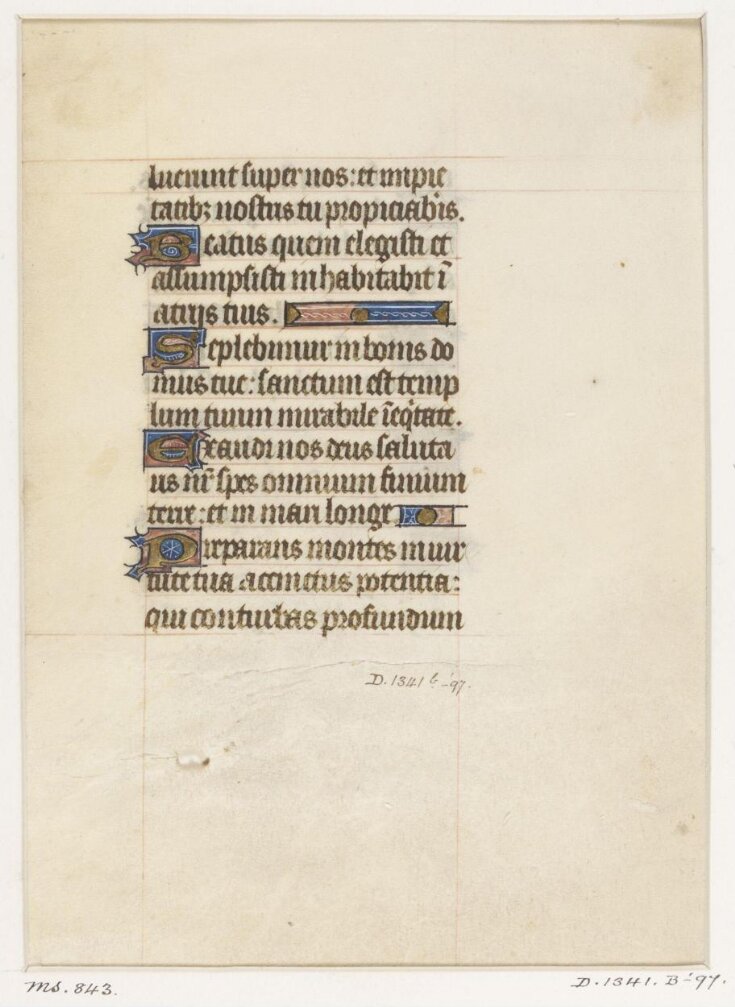 luerunt super nos: et impie
tatib; nostris tu propiciabis.
Beatus quem elegisti et
assumpsisti inhabitabit ī
atriis tuis.
Replebimur in bonis do
mus tue: sanctum est temp
lum tuum mirabile ī eq̇tate.
Exaudi nos deus saluta
ris nr̄ spes omnium finium
terre: et in mari longe.
Preparans montes in uir
tute tua accinctus potentia:
qui conturbas profundum
D.1341 b-'97.
MS. 843.
D.1341.B-'97.